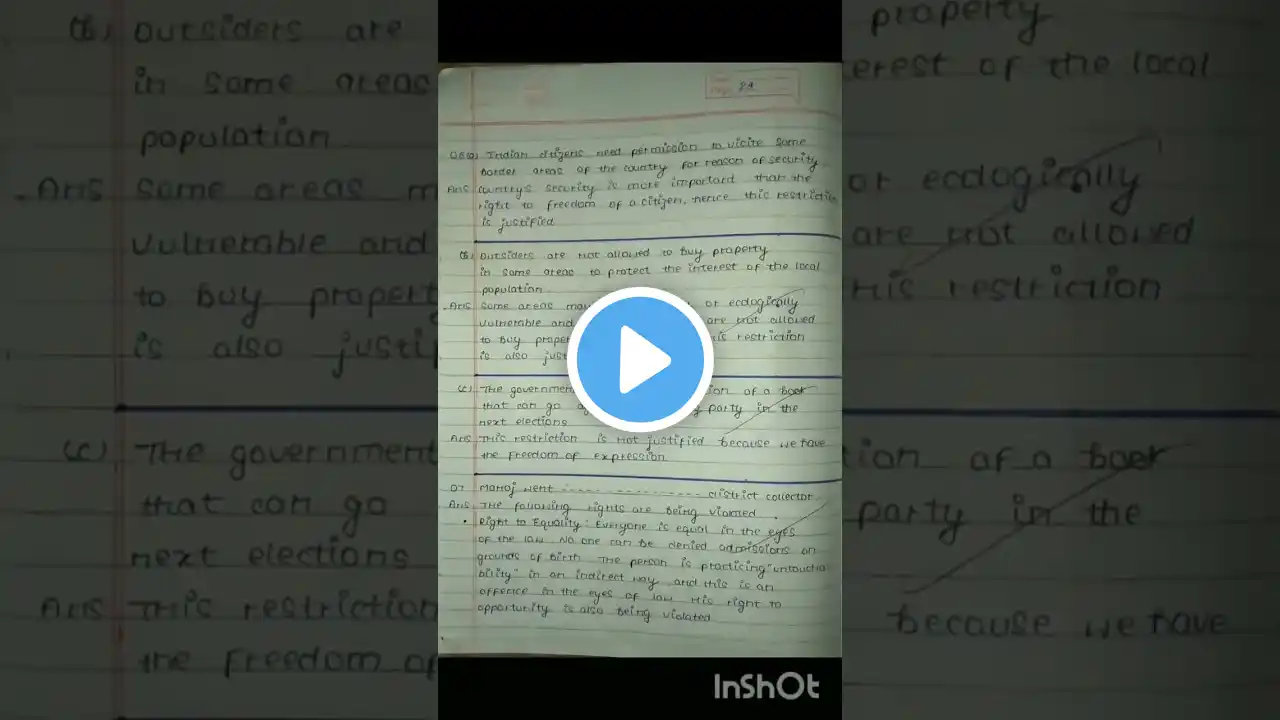 82
Q6(a) Indian citizens need permission to visite some
border areas of the country for reason of security.
Ans Country's security is more important that the
right to freedom of a citizen, hence this restriction
is justified
(b) Outsiders are not allowed to buy property
in some areas to protect the interest of the local
population
Ans Some areas may or ecologically
vulnerable and are not allowed
to buy property His restriction
is also
(c) The government of a book
that can go party in the
next elections
Ans This restriction is not justified because we have
the freedom of expression
Q7 Manoj went - - - - - - - - - - - - district collector.
Ans The following rights are being violated.
• Right to Equality: Everyone is equal in the eyes
of the law. No one can be denied admissions on
grounds of birth. The person is practicing "untoucha
bility" in an indirect way and this is an
offence in the eyes of law. His right to
opportunity is also being violated
InShOt